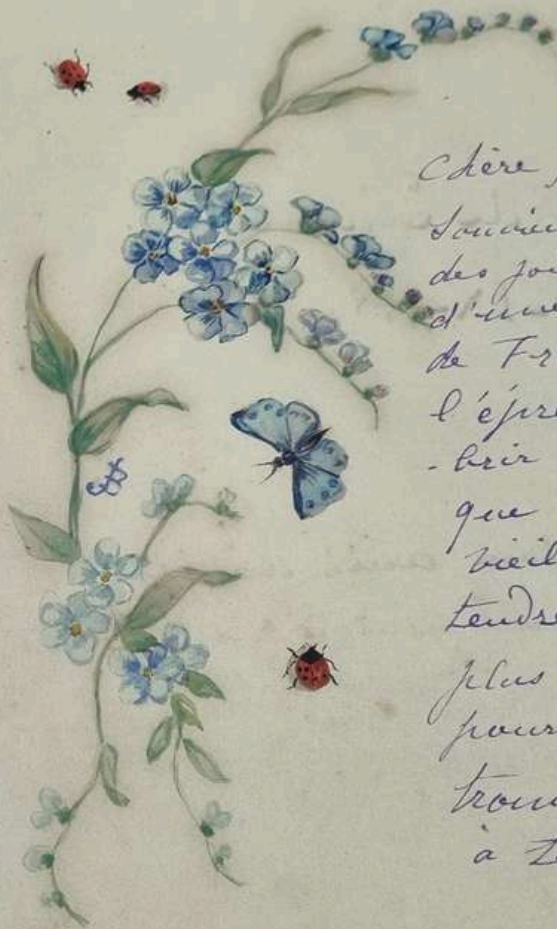 Chère
Souvie
des jou
d'une
de Fr
l'épre
-brir
que
vieil
tendre
plus
pour
trou
à